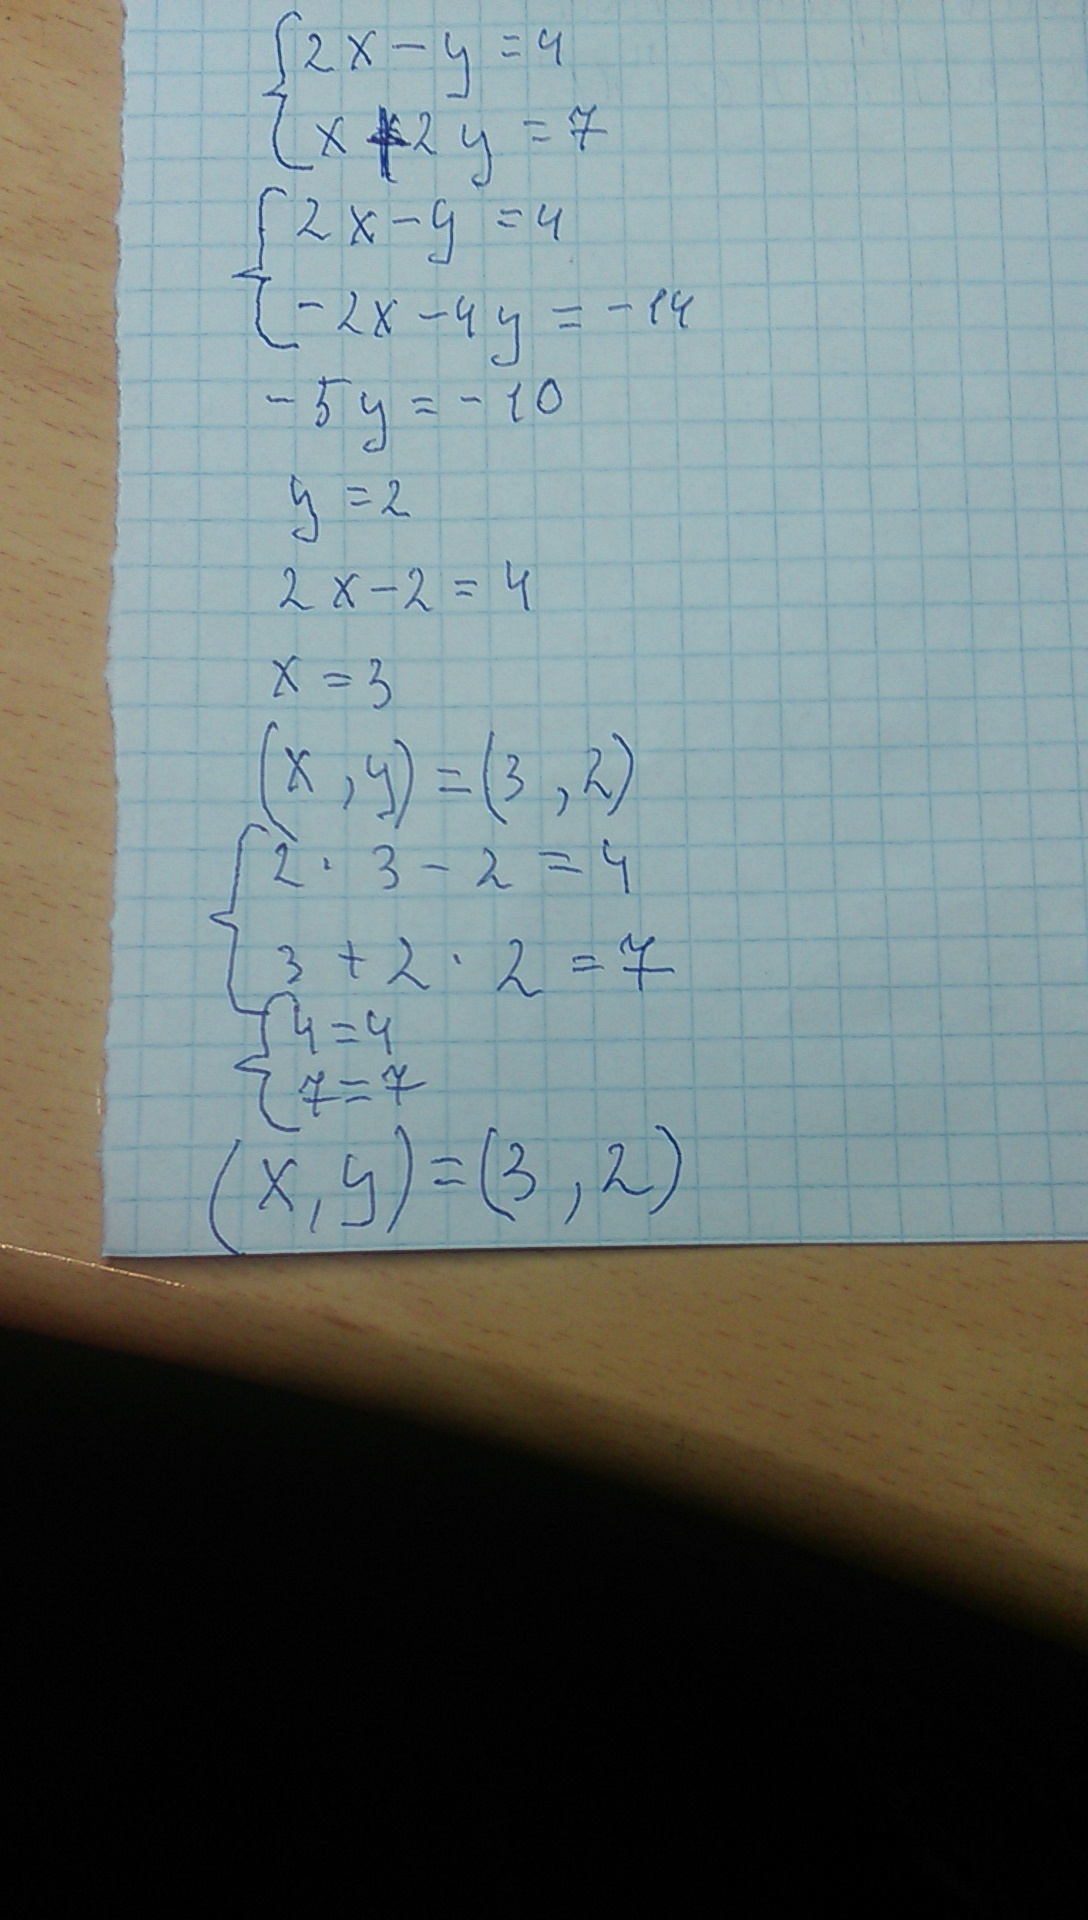 2x - y = 4
x + 2y = 7
2x - y = 4
-2x - 4y = -14
-5y = -10
y = 2
2x - 2 = 4
x = 3
(x, y) = (3, 2)
2 · 3 - 2 = 4
3 + 2 · 2 = 7
4 = 4
7 = 7
(x, y) = (3, 2)